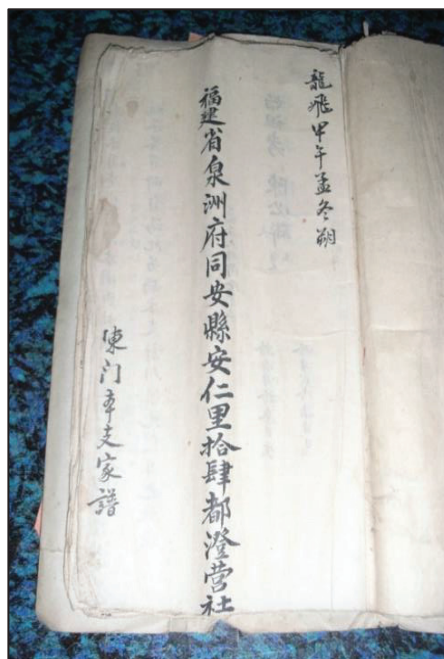 龍飛甲午孟冬朔
福建省泉洲府同安縣安仁里拾肆都澄营社
陳门夲支家譜